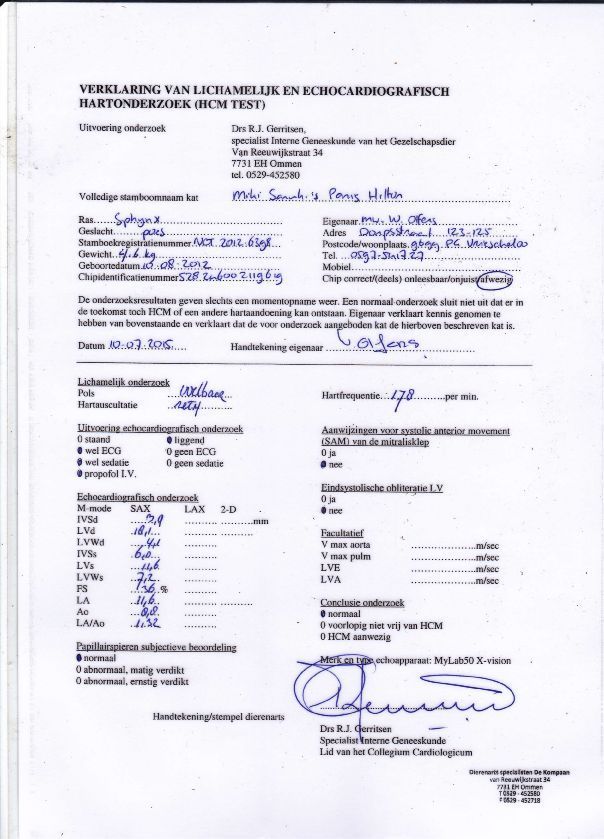 VERKLARING VAN LICHAMELIJK EN ECHOCARDIOGRAFISCH
HARTONDERZOEK (HCM TEST)
Uitvoering onderzoek
Drs R.J. Gerritsen,
specialist Interne Geneeskunde van het Gezelschapsdier
Van Reeuwijkstraat 34
7731 EH Ommen
tel. 0529-452580
Volledige stamboomnaam kat Paris Hilton
Ras. Sphynx
Geslacht. poes
Stamboekregistratienummer.
Gewicht. 4.6 kg
Geboortedatum 10.08.2012
Chipidentificatienummer
Eigenaar mw. W. Olfers
Adres 123-125
Postcode/woonplaats.
Tel.
Mobiel
Chip correct/(deels) onleesbaar/onjuist/afwezig
De onderzoeksresultaten geven slechts een momentopname weer. Een normaal onderzoek sluit niet uit dat er in
de toekomst toch HCM of een andere hartaandoening kan ontstaan. Eigenaar verklaart kennis genomen te
hebben van bovenstaande en verklaart dat de voor onderzoek aangeboden kat de hierboven beschreven kat is.
Datum 10-07-2015 Handtekening eigenaar
Lichamelijk onderzoek
Pols
Hartauscultatie
Hartfrequentie. 178 per min.
Uitvoering echocardiografisch onderzoek
0 staand 0 liggend
0 wel ECG 0 geen ECG
0 wel sedatie 0 geen sedatie
0 propofol I.V.
Aanwijzingen voor systolic anterior movement
(SAM) van de mitralisklep
0 ja
0 nee
Eindsystolische obliteratie LV
0 ja
0 nee
Echocardiografisch onderzoek
M-mode SAX LAX 2-D
IVSd 3,9 mm
LVd 18,1
LVWd 4,1
IVSs 6,0
LVs 11,6
LVWs 7,2
FS 36 %
LA 11,6
Ao 8,8
LA/Ao 1.32
Facultatief
V max aorta m/sec
V max pulm m/sec
LVE m/sec
LVA m/sec
Conclusie onderzoek
0 normaal
0 voorlopig niet vrij van HCM
0 HCM aanwezig
Papillairspieren subjectieve beoordeling
0 normaal
0 abnormaal, matig verdikt
0 abnormaal, ernstig verdikt
Merk en type echoapparaat: MyLab50 X-vision
Handtekening/stempel dierenarts
Drs R.J. Gerritsen
Specialist Interne Geneeskunde
Lid van het Collegium Cardiologicum
Dierenarts specialisten De Kompaan
van Reeuwijkstraat 34
7731 EH Ommen
T 0529 - 452580
F 0529 - 452718